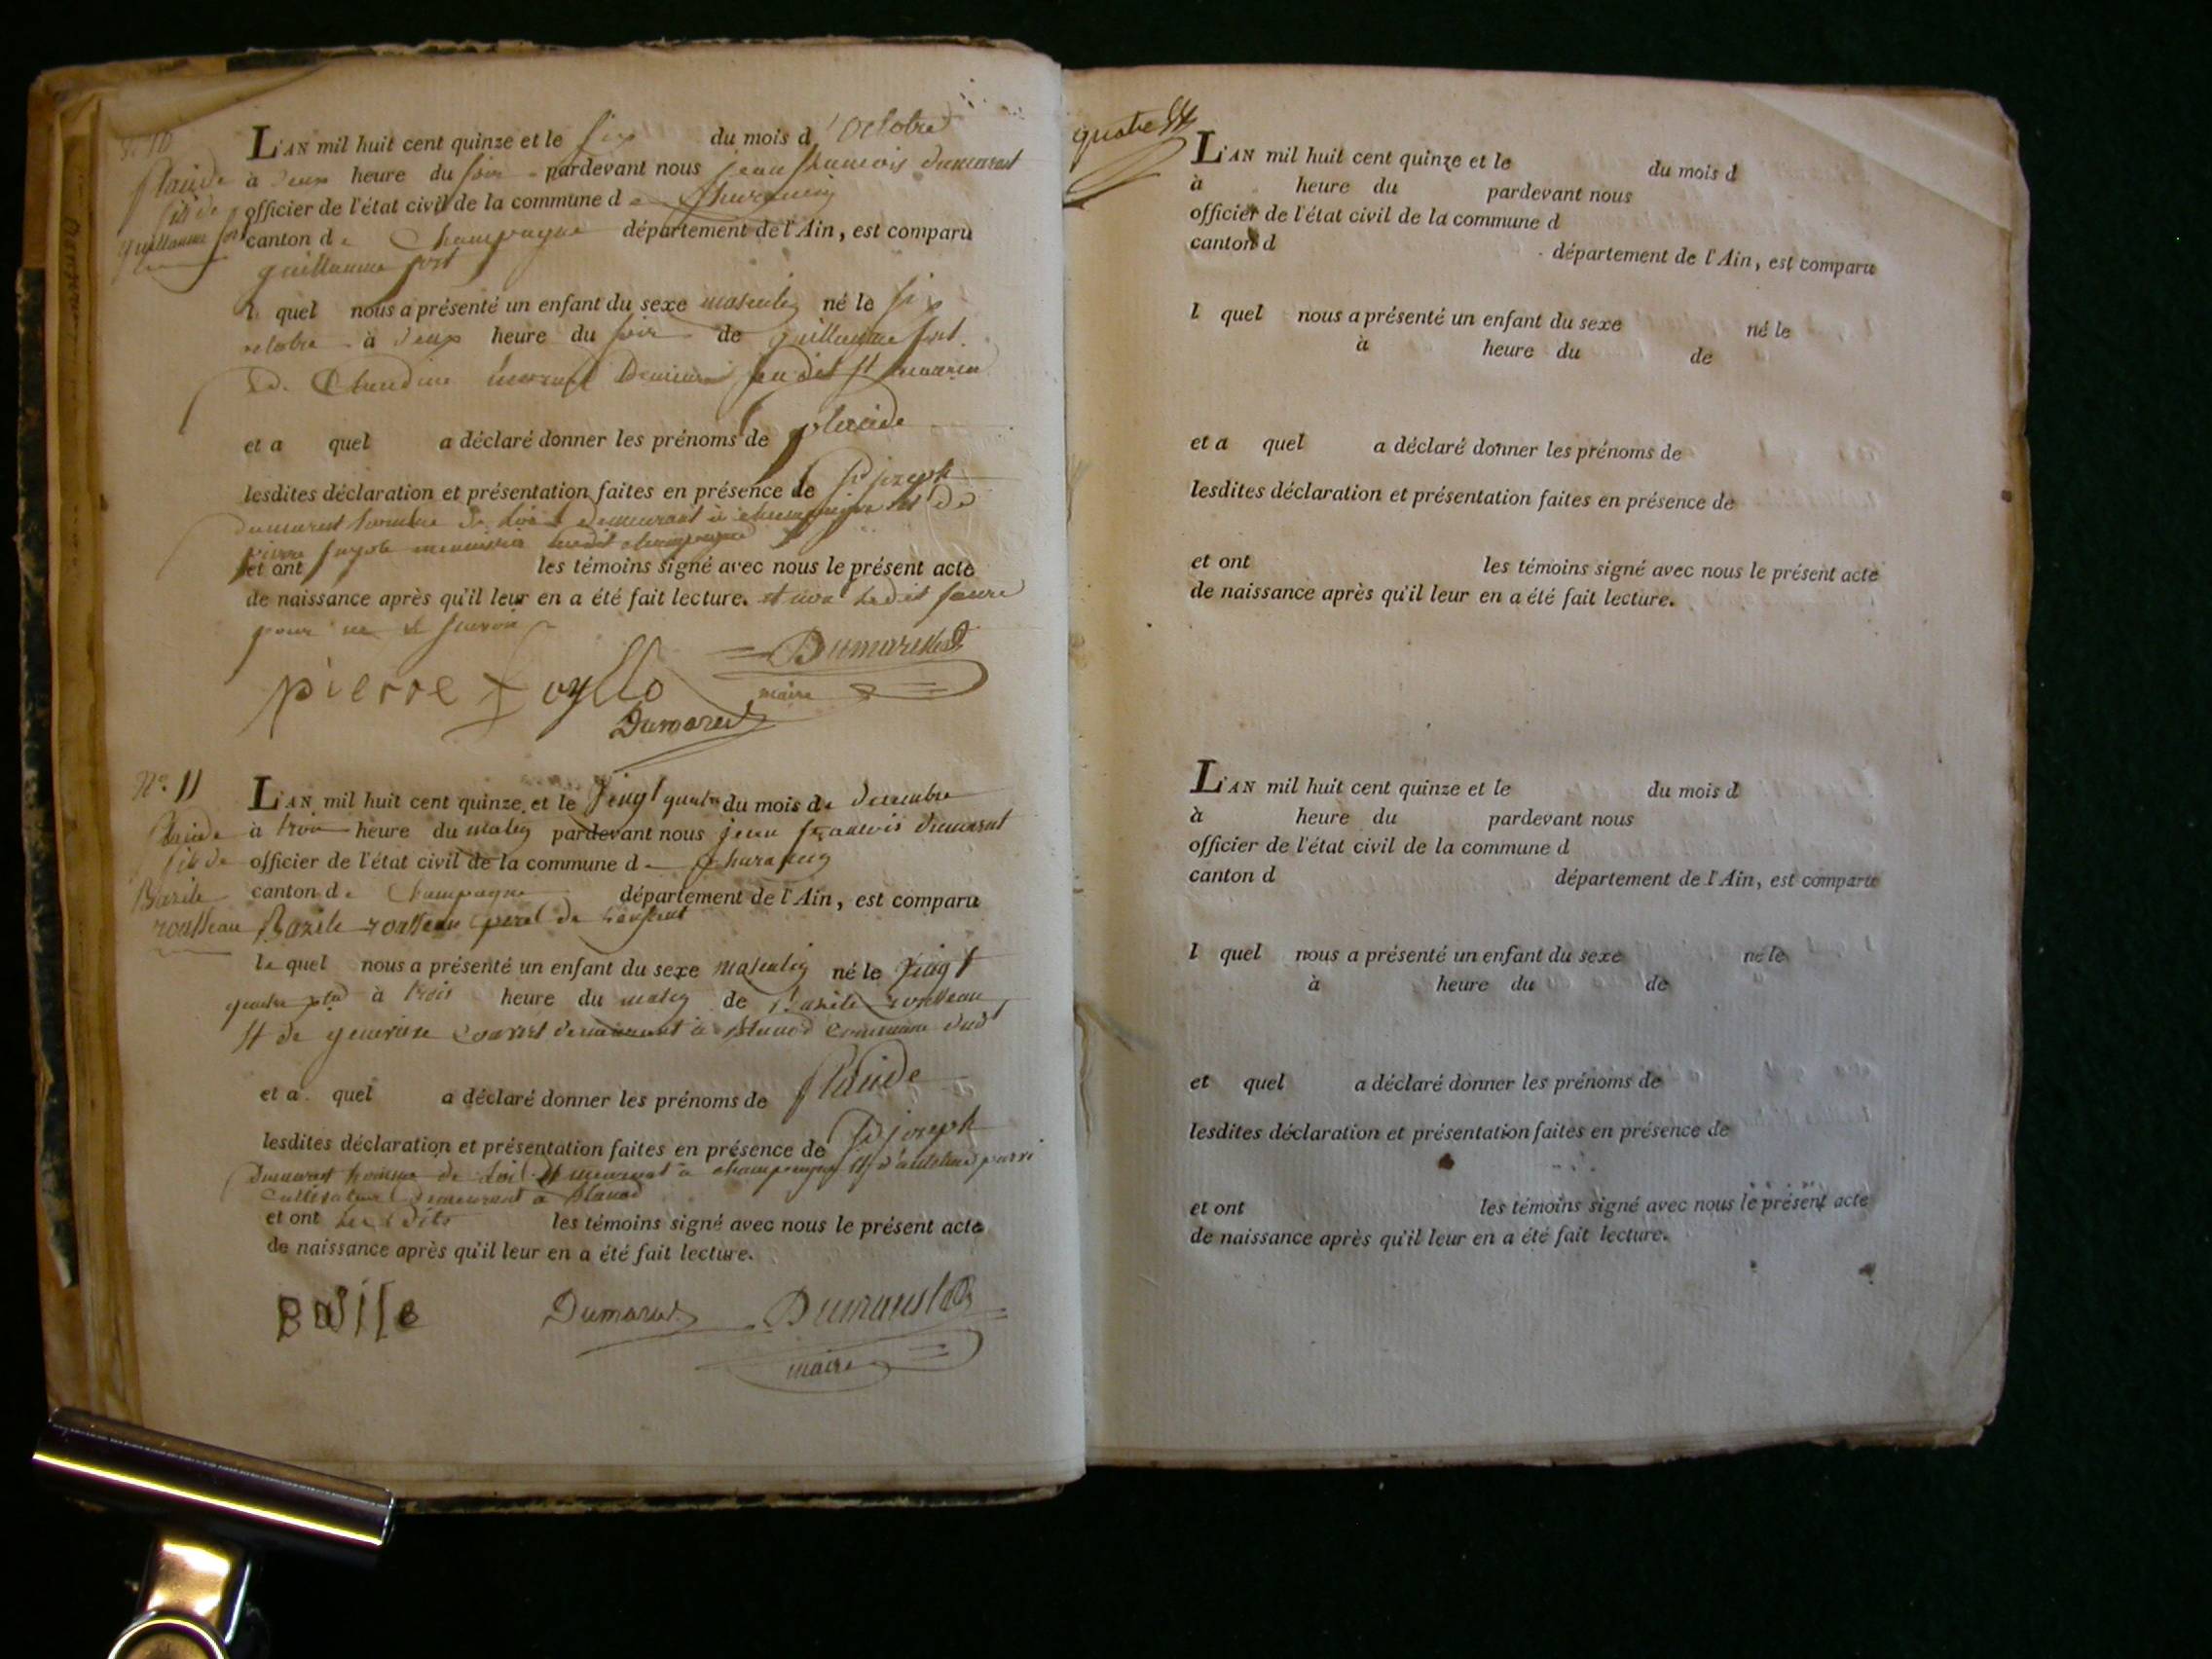 L'AN mil huit cent quinze et le six du mois d'Octobre
à deux heure du soir pardevant nous jean francois dumarest
officier de l'état civil de la commune de
canton de Champagne département de l'Ain, est comparu
guillaume
l quel nous a présenté un enfant du sexe masculin né le six
octobre à deux heure du soir de guillaume
Claudine
et a quel a déclaré donner les prénoms de placide
lesdites déclaration et présentation faites en présence de joseph
dumarest homme de loi demeurant à champagne et de
pierre
et ont les témoins signé avec nous le présent acte
de naissance après qu'il leur en a été fait lecture. et non
pour ne le savoir
pierre
Dumarest
maire
Dumarest
N° 11
fils de
Bazile
rousseau
L'AN mil huit cent quinze et le vingt quatre du mois de decembre
à trois heure du matin pardevant nous jean francois dumarest
officier de l'état civil de la commune d
canton de Champagne département de l'Ain, est comparu
Bazile rousseau pere de l'enfant
le quel nous a présenté un enfant du sexe masculin né le vingt
quatre à trois heure du matin de Bazile rousseau
et de demeurant à commune dud
et a quel a déclaré donner les prénoms de
lesdites déclaration et présentation faites en présence de joseph
Dumarest homme de loi demeurant à champagne et d'antoine
cultivateur demeurant à
et ont les dits les témoins signé avec nous le présent acte
de naissance après qu'il leur en a été fait lecture.
Dumarest
Dumarest
maire
quatre
L'AN mil huit cent quinze et le du mois d
à heure du pardevant nous
officier de l'état civil de la commune d
canton d département de l'Ain, est comparu
l quel nous a présenté un enfant du sexe né le
à heure du de
et a quel a déclaré donner les prénoms de
lesdites déclaration et présentation faites en présence de
et ont les témoins signé avec nous le présent acte
de naissance après qu'il leur en a été fait lecture.
L'AN mil huit cent quinze et le du mois d
à heure du pardevant nous
officier de l'état civil de la commune d
canton d département de l'Ain, est comparu
l quel nous a présenté un enfant du sexe né le
à heure du de
et quel a déclaré donner les prénoms de
lesdites déclaration et présentation faites en présence de
et ont les témoins signé avec nous le présent acte
de naissance après qu'il leur en a été fait lecture.